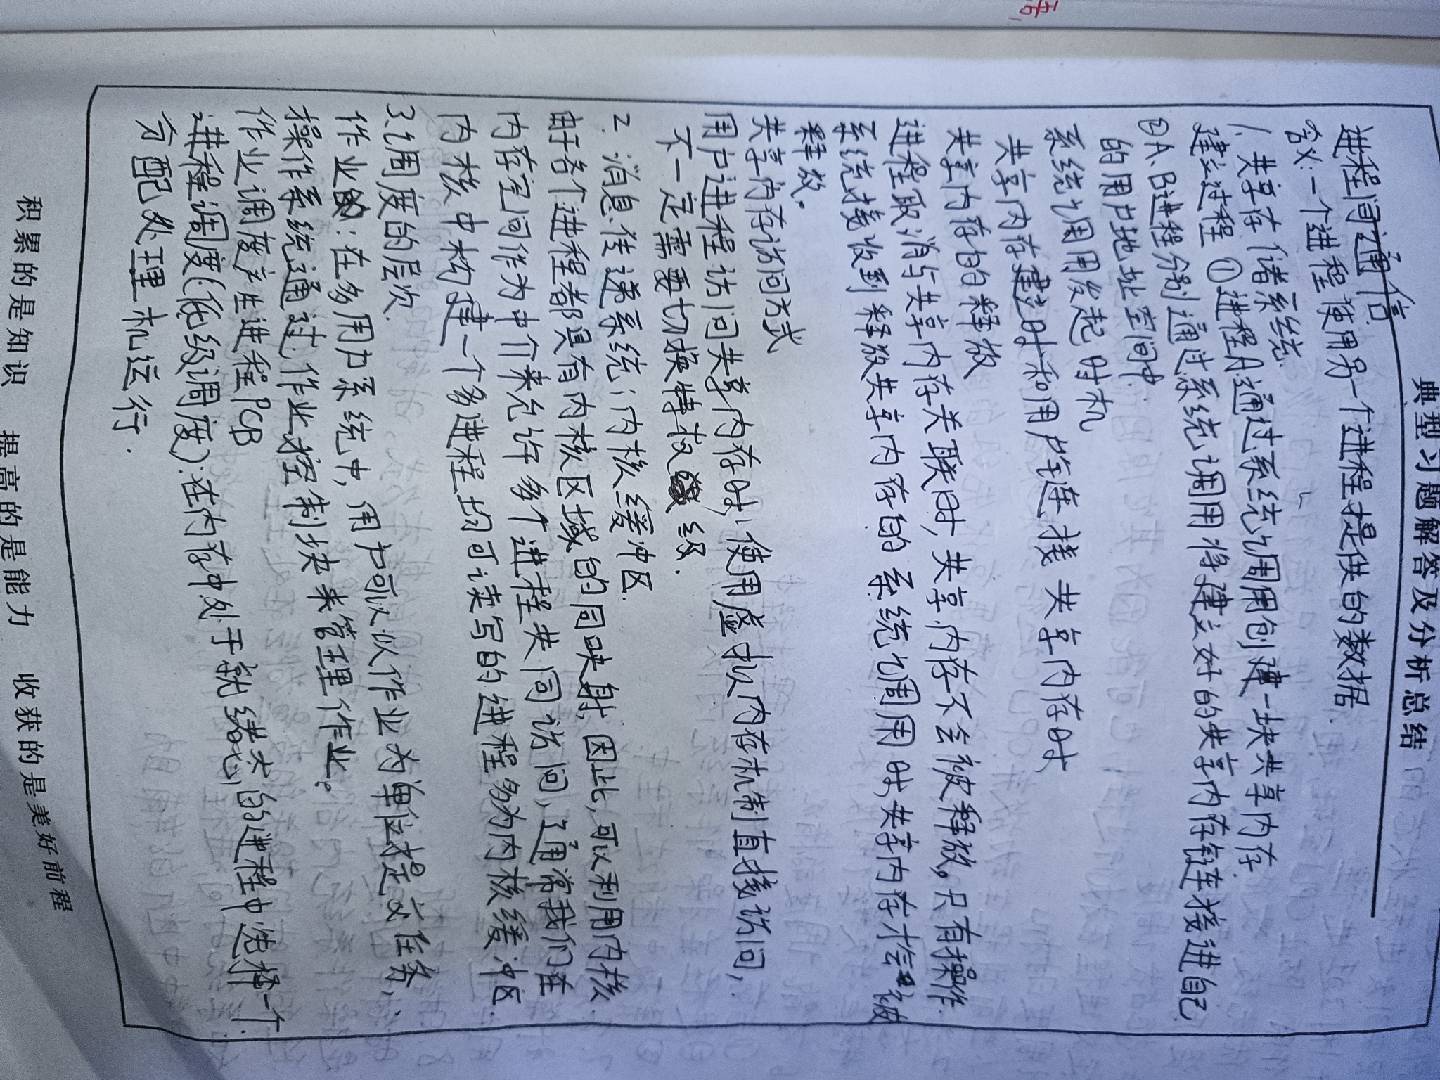 典型习题解答及分析总结
进程间通信
含义:一个进程使用另一个进程提供的数据.
1.共享存储系统.
建立过程 ①进程A通过系统调用创建一块共享内存.
②A、B进程分别通过系统调用将建立好的共享内存连接进自己
的用户地址空间中.
系统调用发起时机
共享内存建立时和用户连接共享内存时
共享内存的释放
进程取消与共享内存关联时,共享内存不会被释放。只有操作
系统接收到释放共享内存的系统调用时,共享内存才会被
释放。
共享内存访问方式
用户进程访问共享内存时,使用虚拟内存机制直接访问,
不一定需要切换特权级.
2.消息传递系统;内核缓冲区.
由于各个进程都具有内核区域的同映射,因此,可以利用内核
内存空间作为中介来允许多个进程共同访问,通常我们在
内核中构建一个多进程均可读写的进程多为内核缓冲区.
3.调度的层次.
作业:在多用户系统中,用户可以以作业为单位提交任务,
操作系统通过作业控制块来管理作业。
作业调度产生进程PCB
进程调度(低级调度):在内存中处于就绪态的进程中选择一个
分配处理机运行.
积累的是知识 提高的是能力 收获的是美好前程